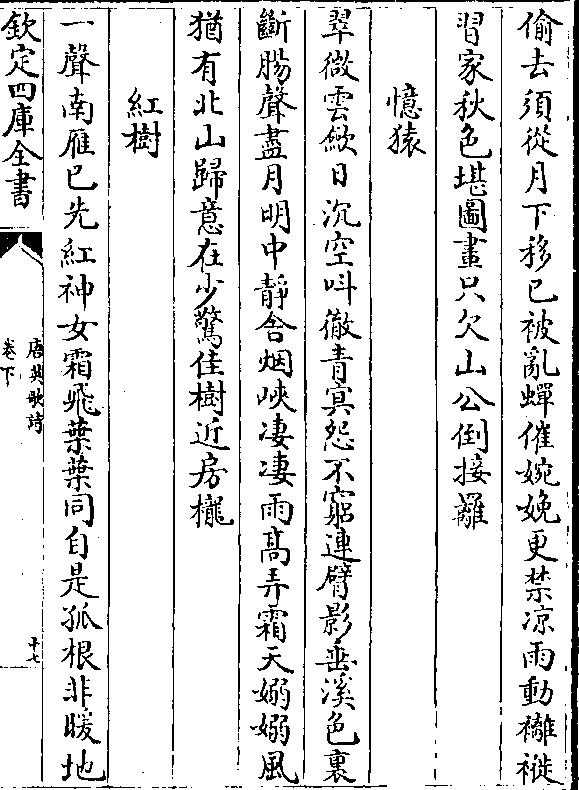 偷去須從月下移已被亂蟬催婉娩更禁凉雨動䙰褷
習家秋色堪圖畫只欠山公倒接䍦
憶猿
翠微雲歛日沉空叫徹青冥怨不窮連臂影垂溪色裏
斷腸聲盡月明中静含烟峽凄凄雨髙弄霜天嫋嫋風
猶有北山歸意在少驚佳樹近房櫳
紅樹
一聲南雁已先紅神女霜飛葉葉同自是孤根非暖地
欽定四庫全書
唐英歌詩
卷下
十七